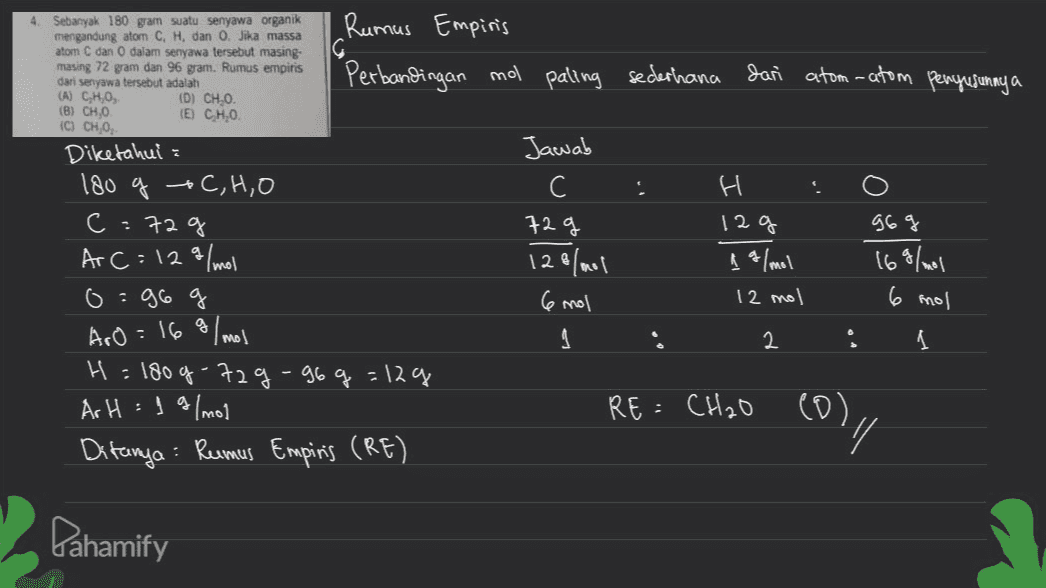 4. Sebanyak 180 gram suatu senyawa organik
mengandung atom C, H, dan O. Jika massa
atom C dan O dalam senyawa tersebut masing-
masing 72 gram dan 96 gram. Rumus empiris
dari senyawa tersebut adalah
(A)
(D) CH₂O.
(B)
(E)
(C)
Rumus Empiris
↳ Perbandingan mol paling sederhana dari atom-atom penyusunnya
Diketahui =
180 g → C, H, O
C = 72 g
Ar C = 12 g/mol
O = 96 g
ArO = 16 g/mol
H = 180 g - 72 g - 96 g = 12 g
Ar H = 1 g/mol
Ditanya : Rumus Empiris (RE)
Jawab
C : H : O
72 g 12 g 96 g
12 g/mol 1 g/mol 16 g/mol
6 mol 12 mol 6 mol
1 : 2 : 1
RE = CH₂O (D) //
Pahamify